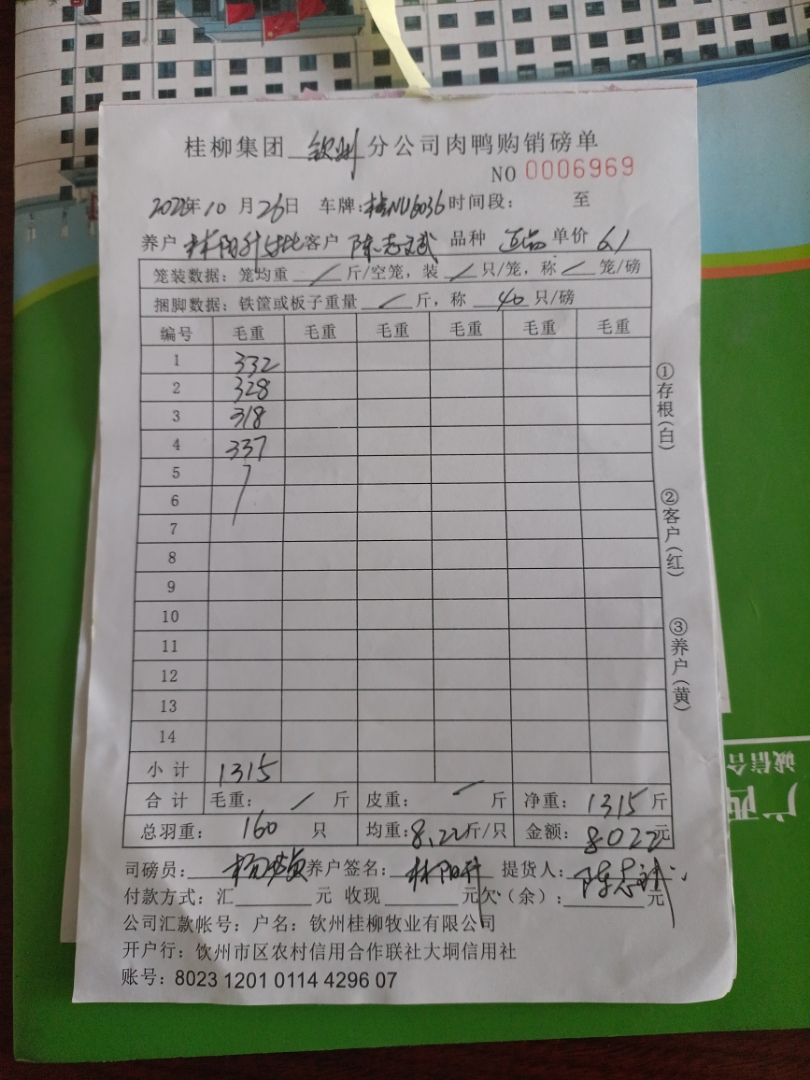 桂柳集团 钦州 分公司肉鸭购销磅单
NO 0006969
年10月26日 车牌: NU6036 时间段: 至
养户 林阳升 客户 陈志斌 品种 正品 单价 6.1
笼装数据: 笼均重 / 斤/空笼, 装 / 只/笼, 称 / 笼/磅
捆脚数据: 铁筐或板子重量 / 斤, 称 40 只/磅
编号 毛重 毛重 毛重 毛重 毛重 毛重
1 332
2 328
3 318
4 337
5
6
7
8
9
10
11
12
13
14
小计 1315
合计 毛重: / 斤 皮重: 斤 净重: 1315 斤
总羽重: 160 只 均重: 8.22 斤/只 金额: 8022 元
司磅员: 养户签名: 林阳升 提货人: 陈志斌
付款方式: 汇 元 收现 元 欠(余): 元
公司汇款帐号: 户名: 钦州桂柳牧业有限公司
开户行: 钦州市区农村信用合作联社大垌信用社
账号: 8023 1201 0114 4296 07
①存根(白)
②客户(红)
③养户(黄)
诚信合
广西